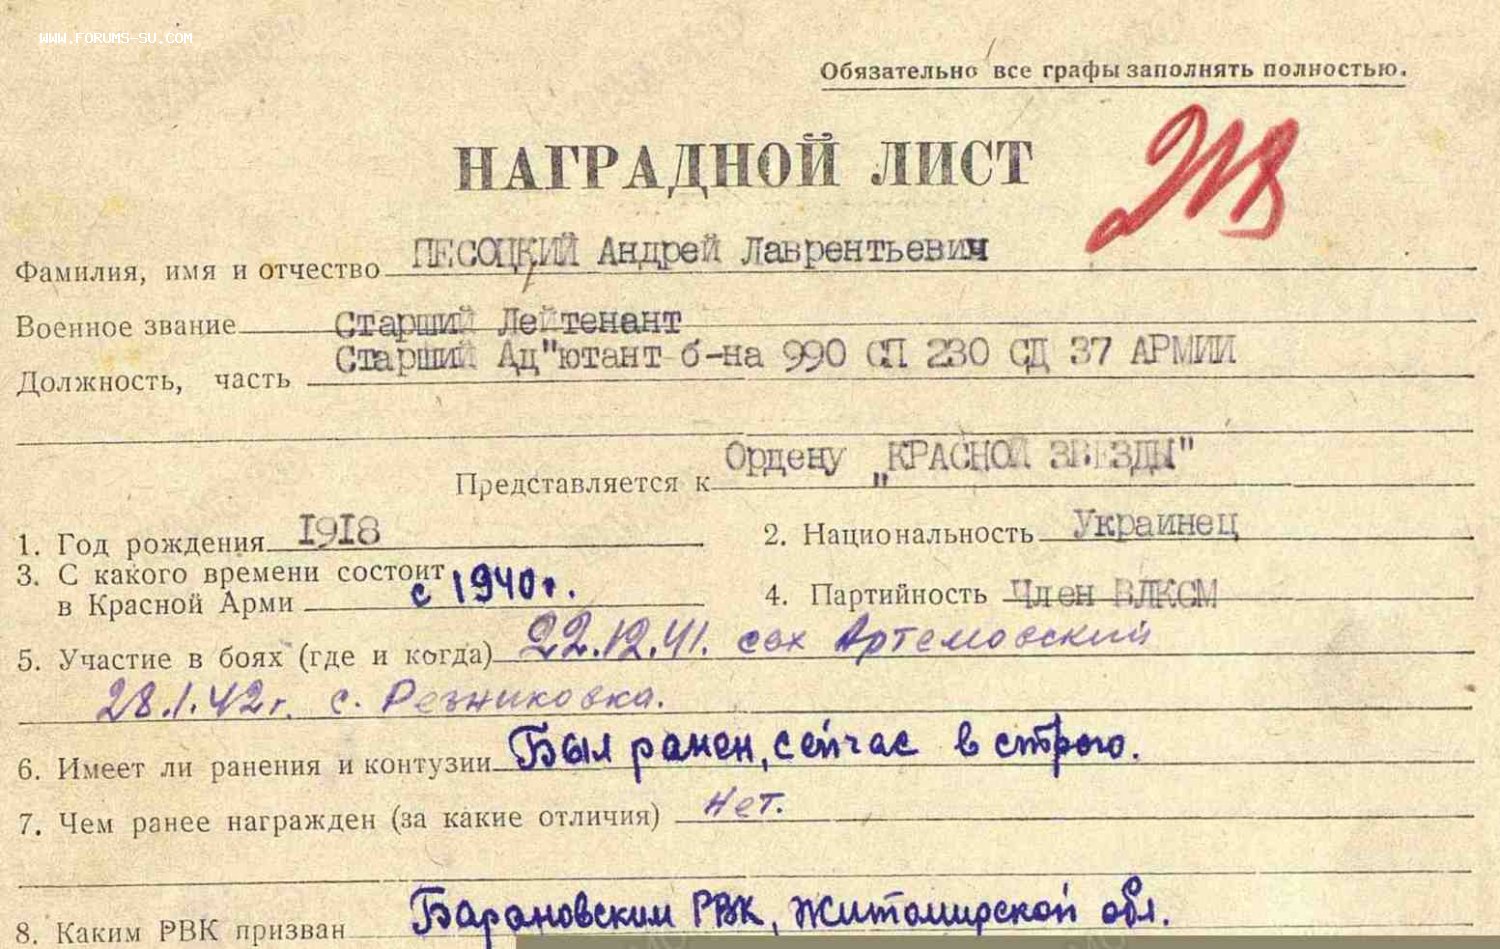 WWW.FORUMS-SU.COM
Обязательно все графы заполнять полностью.
НАГРАДНОЙ ЛИСТ
Фамилия, имя и отчество ПЕСОЦКИЙ Андрей Лаврентьевич
Военное звание Старший Лейтенант
Старший Ад"ютант б-на 990 СП 230 СД 37 АРМИИ
Должность, часть
Представляется к Ордену „КРАСНОЙ ЗВЕЗДЫ"
1. Год рождения 1918
2. Национальность Украинец
3. С какого времени состоит
в Красной Арми с 1940г.
4. Партийность Член ВЛКСМ
5. Участие в боях (где и когда) 22.12.41. свх Артемовский
28.1.42г. с. Резниковка.
6. Имеет ли ранения и контузии Был ранен, сейчас в строю.
7. Чем ранее награжден (за какие отличия) Нет.
8. Каким РВК призван Барановским РВК, Житомирской обл.